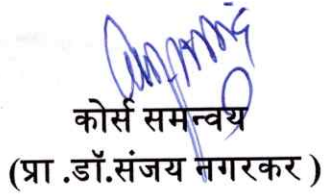 कोर्स समन्वय
(प्रा .डॉ.संजय नगरकर )